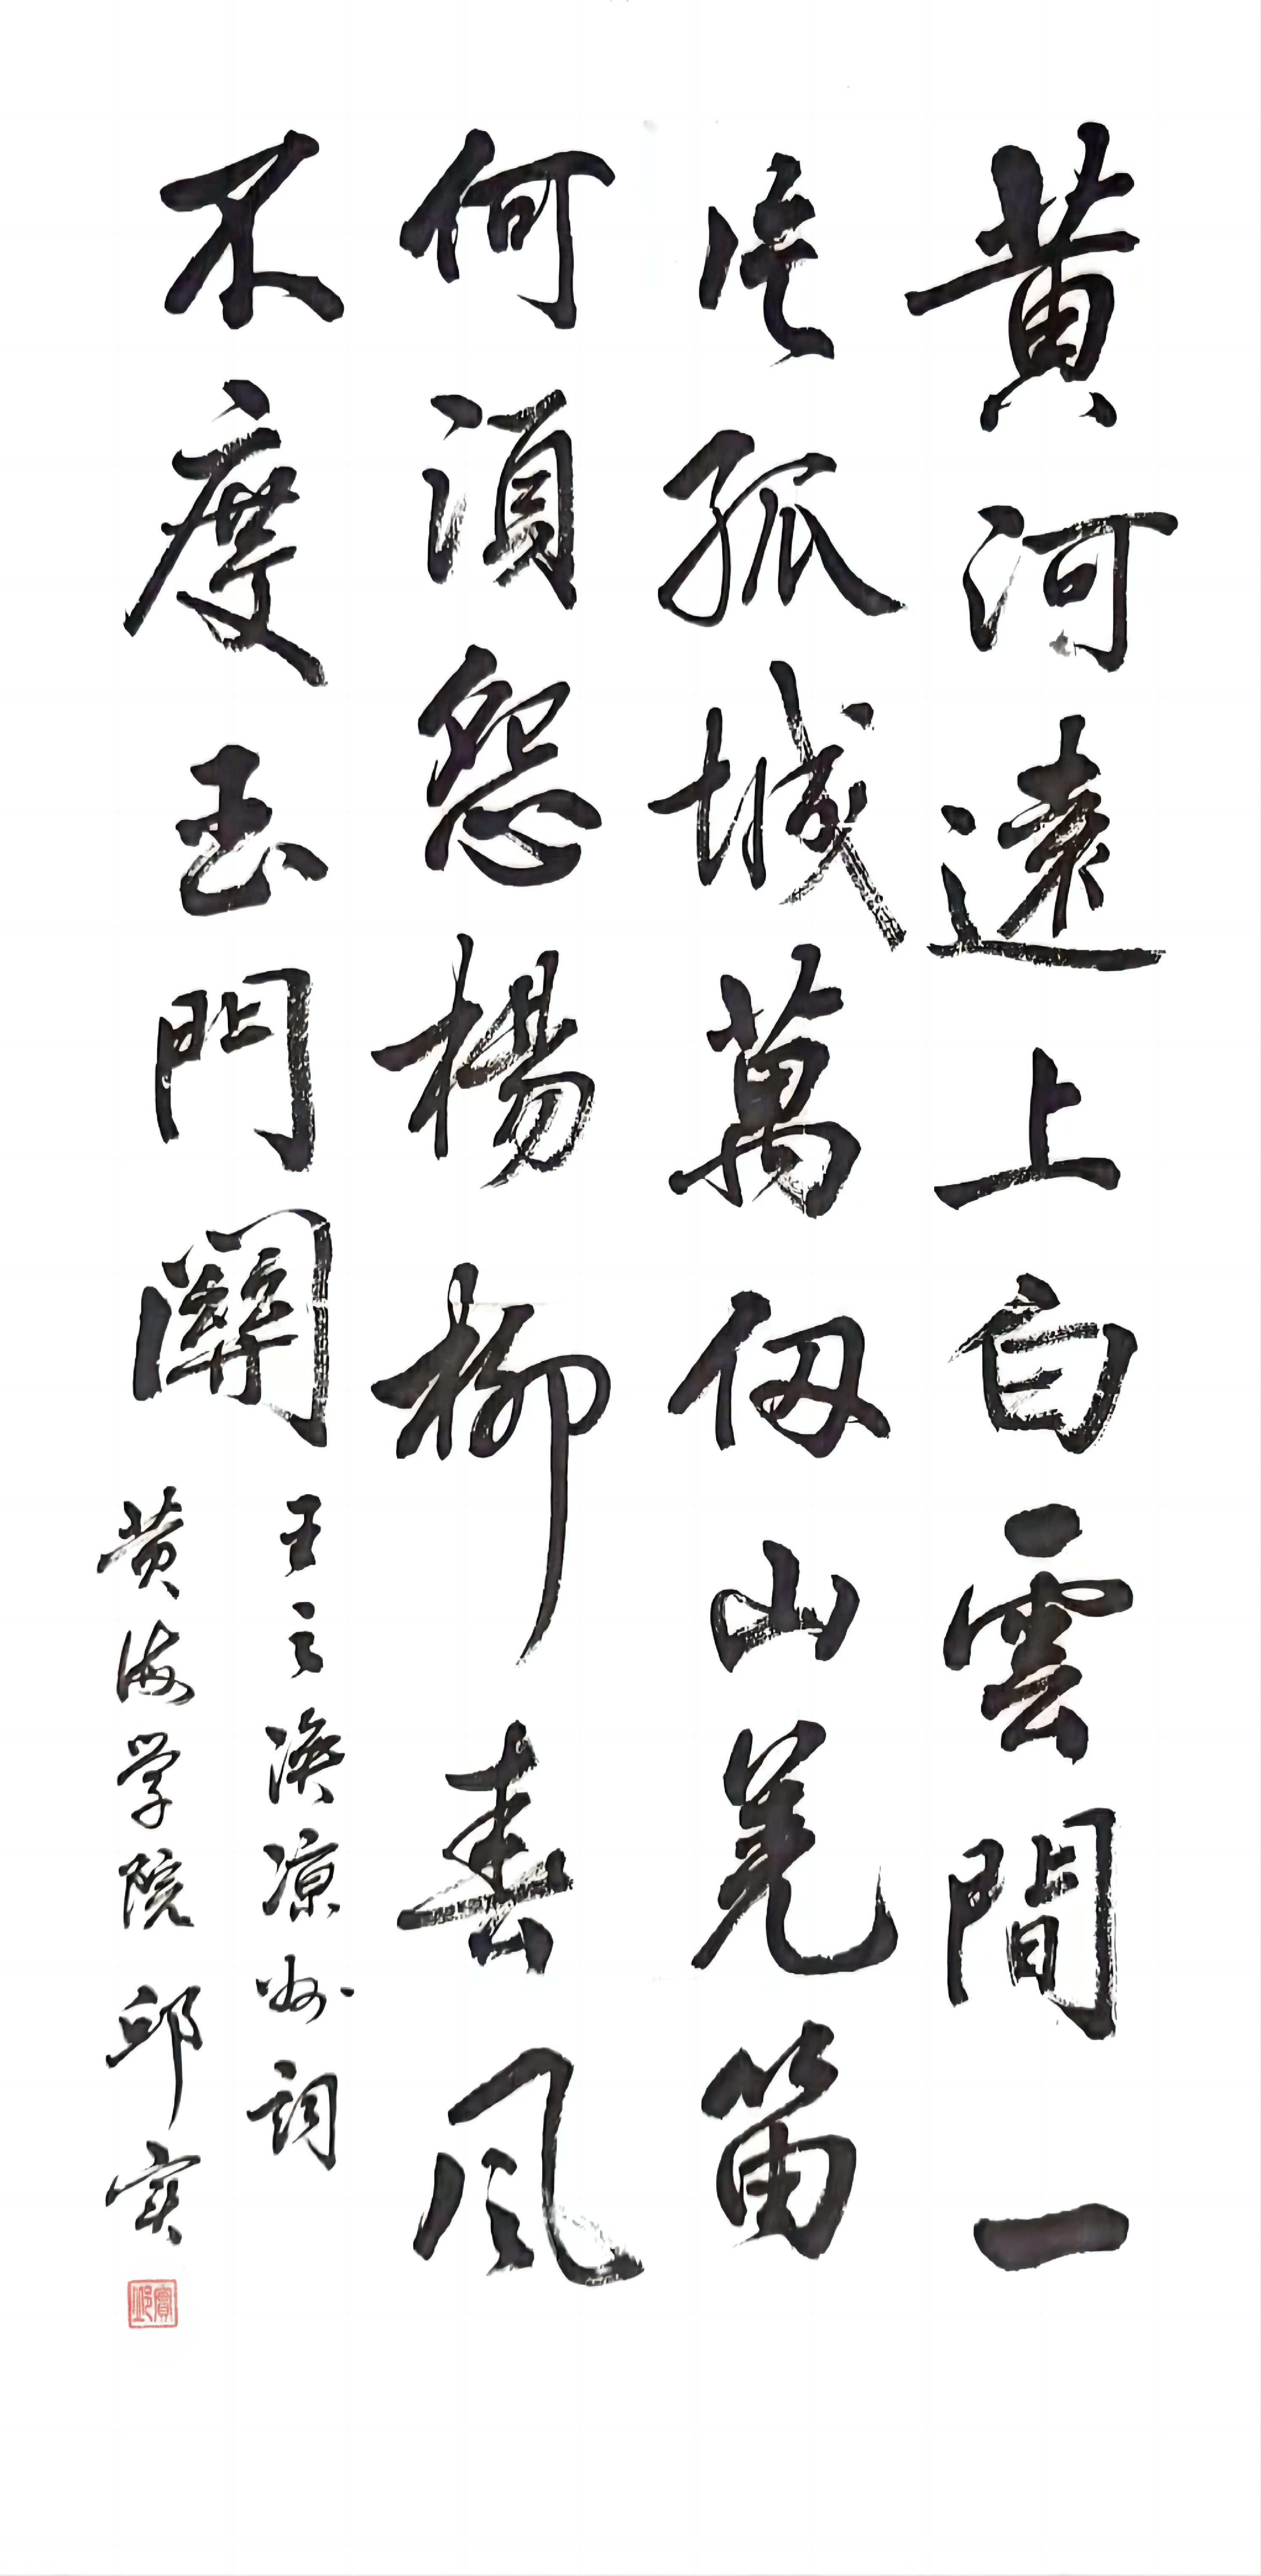 黄河遠上白雲間一
片孤城萬仞山羌笛
何須怨楊柳春風
不度玉門關
王之渙凉州詞
黄海学院 邱实
邱實